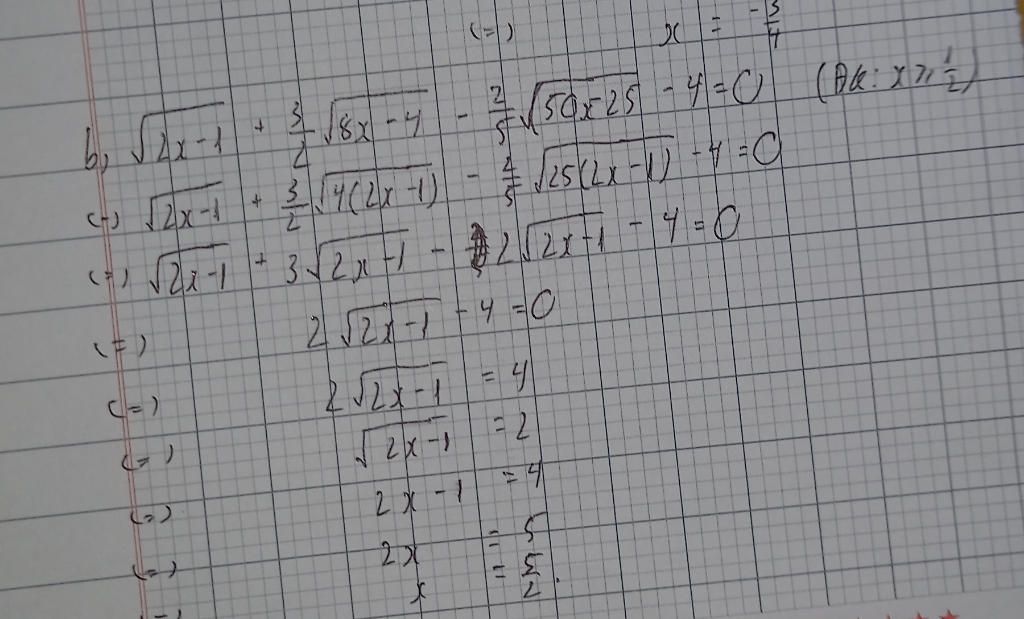 (=) x = -3/4
b, √(2x-1) + 3/2 √(8x-4) - 2/5 √(50x-25) - 4 = 0 (ĐK: x ≥ 1/2)
(=) √(2x-1) + 3/2 √(4(2x-1)) - 2/5 √(25(2x-1)) - 4 = 0
(=) √(2x-1) + 3√(2x-1) - 2√(2x-1) - 4 = 0
(=) 2√(2x-1) - 4 = 0
(=) 2√(2x-1) = 4
(=) √(2x-1) = 2
(=) 2x-1 = 4
(=) 2x = 5
(=) x = 5/2.